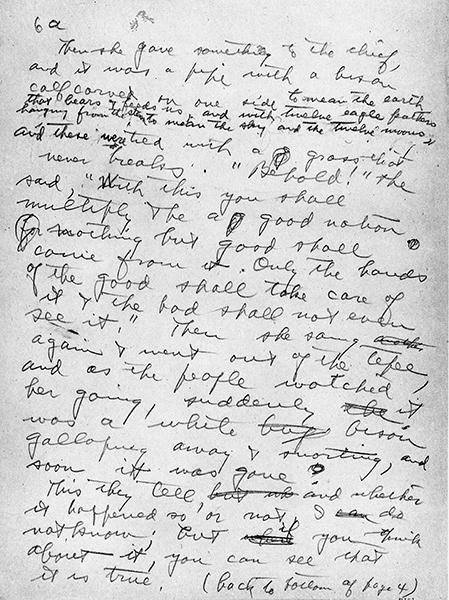 6a
Then she gave something to the chief,
and it was a pipe with a bison
calf carved on one side to mean the earth
that bears & feeds us and with twelve eagle feathers
hanging from the stem to mean the sky and the twelve moons &
and these were tied with a grass that
never breaks. "Behold!" she
said, "With this you shall
multiply & be a good nation
for nothing but good shall
come from it. Only the hands
of the good shall take care of
it & the bad shall not even
see it." Then she sang
again & went out of the tepee,
and as the people watched
her going, suddenly it
was a white bison
galloping away & snorting, and
soon it was gone
This they tell and whether
it happened so or not, I do
not know; but if you think
about it, you can see that
it is true. (back to bottom of page 4)